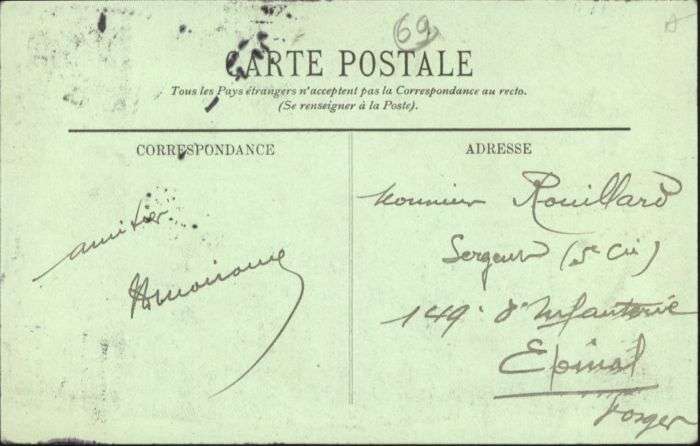 69
CARTE POSTALE
Tous les Pays étrangers n'acceptent pas la Correspondance au recto.
(Se renseigner à la Poste).
CORRESPONDANCE
ADRESSE
amitier
Monsieur Rouillard
Sergent (5e Cie)
149e d'Infanterie
Epinal
Vosges